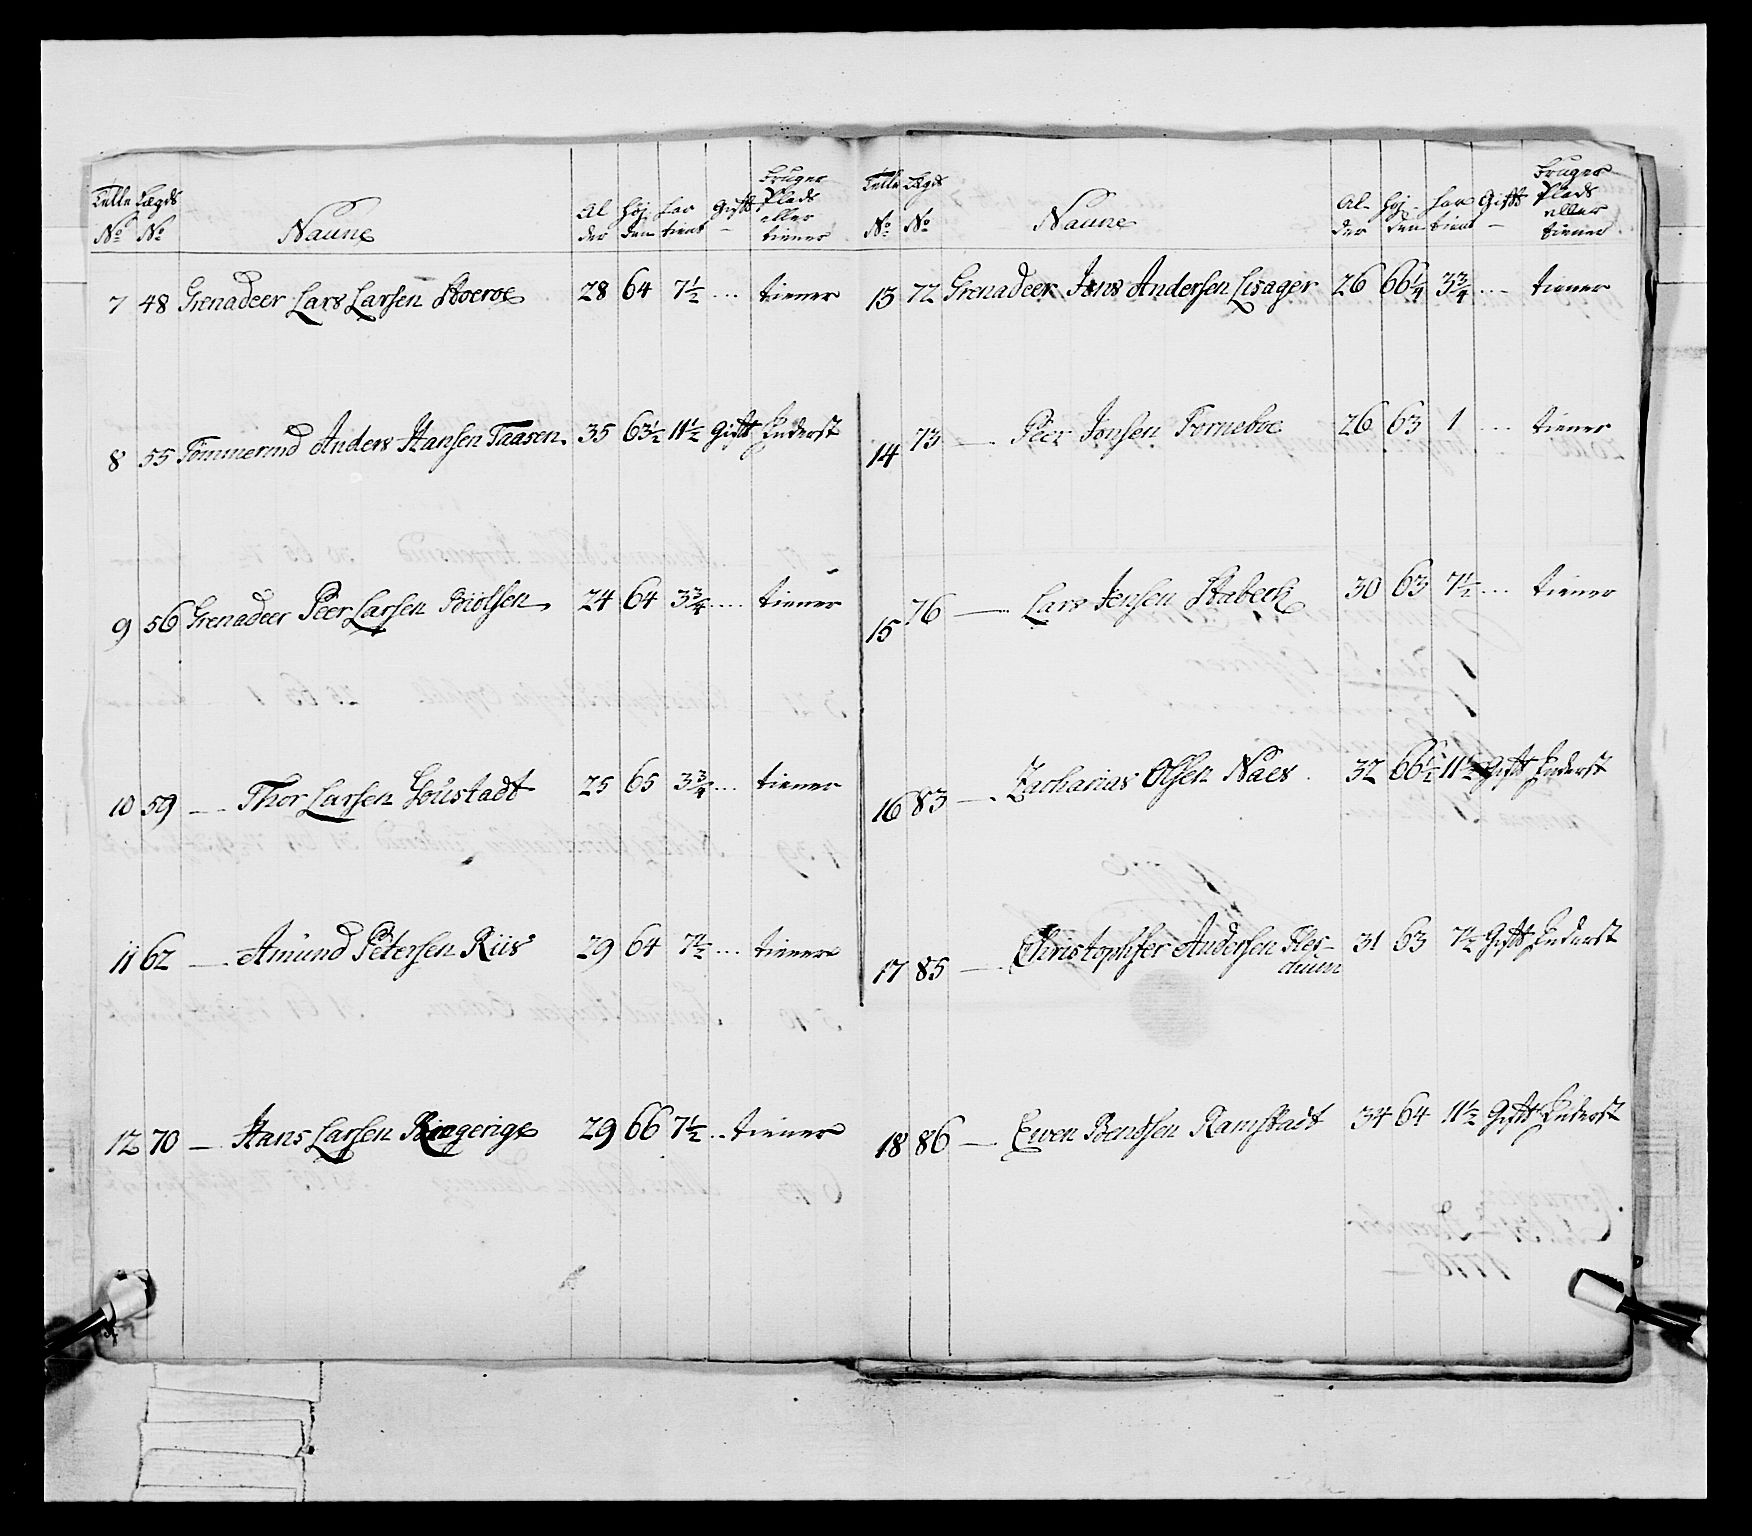 Telle Lægds Naune Al der Høj den har tient Gift Bruger Plads eller tiener
No No
7 48 Grenadeer Lars Larsen Stoeroe 28 64 7½ ... tiener
8 55 Tömmermd Anders Hansen Taasen 35 63½ 11½ Gift Inderst
9 56 Grenadeer Peer Larsen Biölsen 24 64 3¾ .... tiener
10 59 — Thor Larsen Goustadt 25 65 3¾ ... tiener
11 62 — Amund Petersen Riis 29 64 7½ ... tiener
12 70 — Hans Larsen Ringerige 29 66 7½ .. tiener
Telle Lægds Naune Al- der Høj- den har tient Gift Bruger Plads eller tiener
No No
13 72 Grenadeer Jens Andersen Lisager 26 66¼ 3¾ ... tiener
14 73 — Peer Jonsen Forneboe 26 63 1 ... tiener
15 76 — Lars Jensen Stabeck 30 63 7½ ... tiener
16 83 — Zacharias Olsen Naes 32 66½ 11½ Gift Inderst
17 85 — Christophfer Andersen 31 63 7½ Gift Inderst
18 86 — Ewen Bendsen Ramstadt 34 64 11½ Gift Inderst